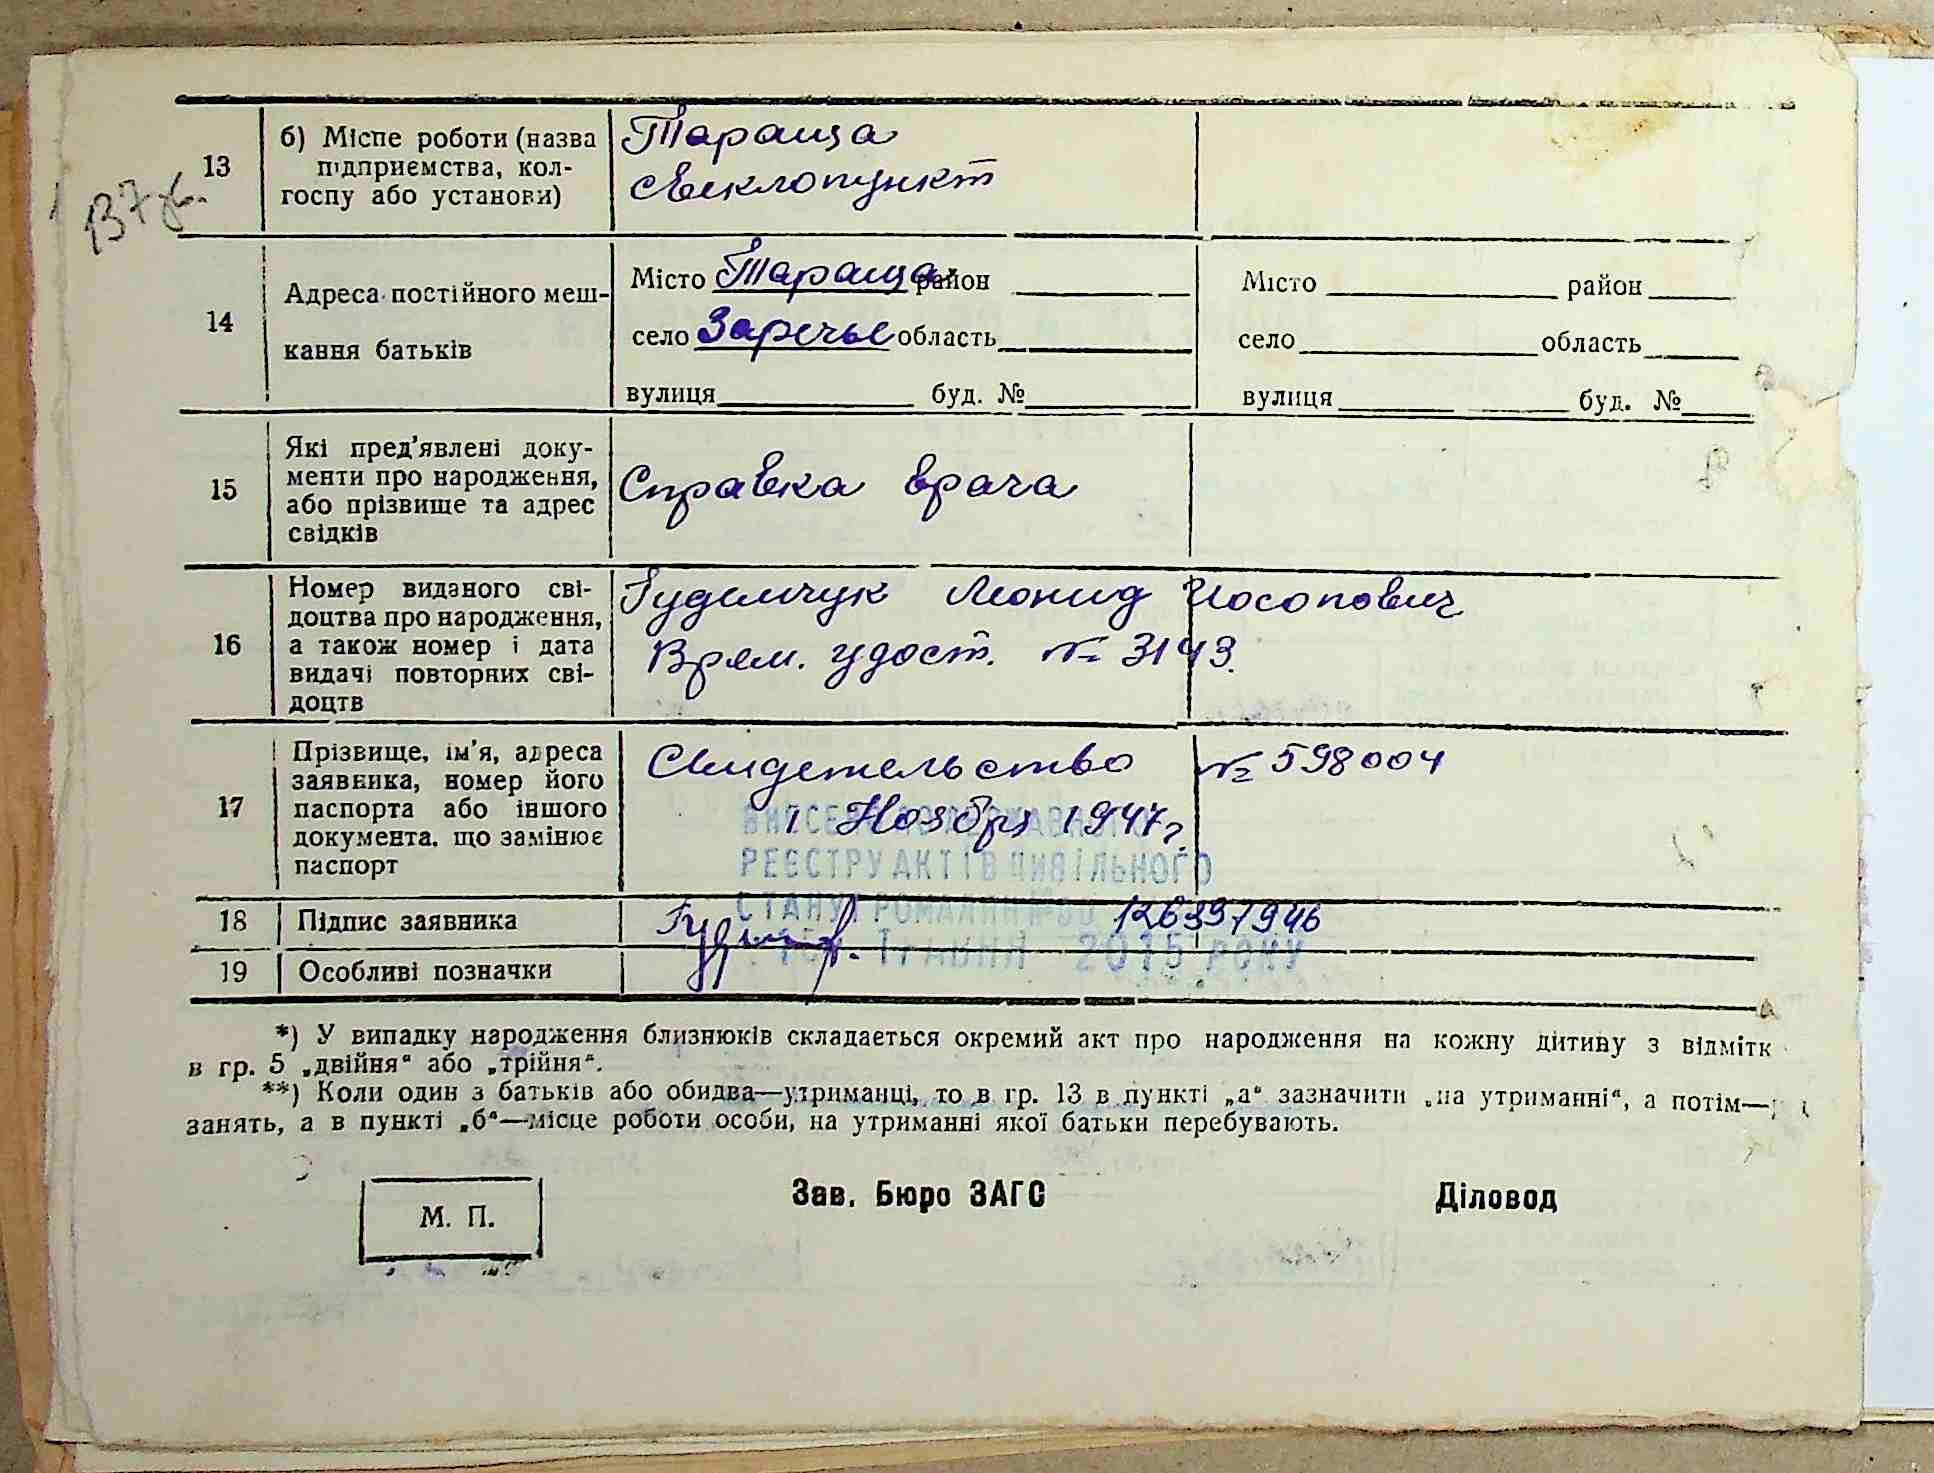 137 зв.
13
б) Місце роботи (назва
підприємства, кол-
госпу або установи)
Тараща
свеклопункт
14
Адреса постійного меш-
кання батьків
Місто Тараща район
село Заречье область
вулиця буд. №
Місто район
село область
вулиця буд. №
15
Які пред’явлені доку-
менти про народження,
або прізвище та адрес
свідків
Справка врача
16
Номер виданого сві-
доцтва про народження,
а також номер і дата
видачі повторних сві-
доцтв
Гудемчук Леонид Иосопович
Врем. удост. № 3143.
17
Прізвище, ім’я, адреса
заявника, номер його
паспорта або іншого
документа, що замінює
паспорт
Свидетельство № 598004
1 Ноября 1947 г.
РЕЄСТРУ АКТІВ ЦИВІЛЬНОГО
СТАНУ ГРОМАДЯН №
18
Підпис заявника
126397946
ТРАВНЯ 2015 РОКУ
19
Особливі позначки
*) У випадку народження близнюків складається окремий акт про народження на кожну дитину з відмітк
в гр. 5 „двійня“ або „трійня“.
**) Коли один з батьків або обидва—утриманці, то в гр. 13 в пункті „а“ зазначити „на утриманні“, а потім—
занять, а в пункті „б“—місце роботи особи, на утриманні якої батьки перебувають.
М. П.
Зав. Бюро ЗАГС
Діловод